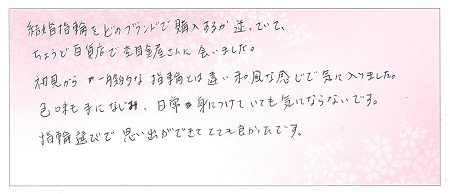 結婚指輪をどのブランドで購入するか迷っていて、
ちょうど百貨店で杢目金屋さんに会いました。
初見から 一般的な指輪とは違い和風な感じで気に入りました。
色味も手になじみ、日常 身につけていても気にならないです。
指輪選びで思い出ができてとても良かったです。